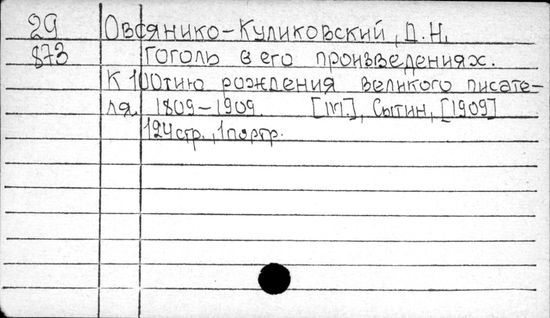 29 Овсянико-Куликовский, Д.Н.
873 Гоголь в его произведениях.
К 100тию рождения великого писате-
ля. 1809-1909. [М.], Сытин, [1909]
124 стр., 1 портр.